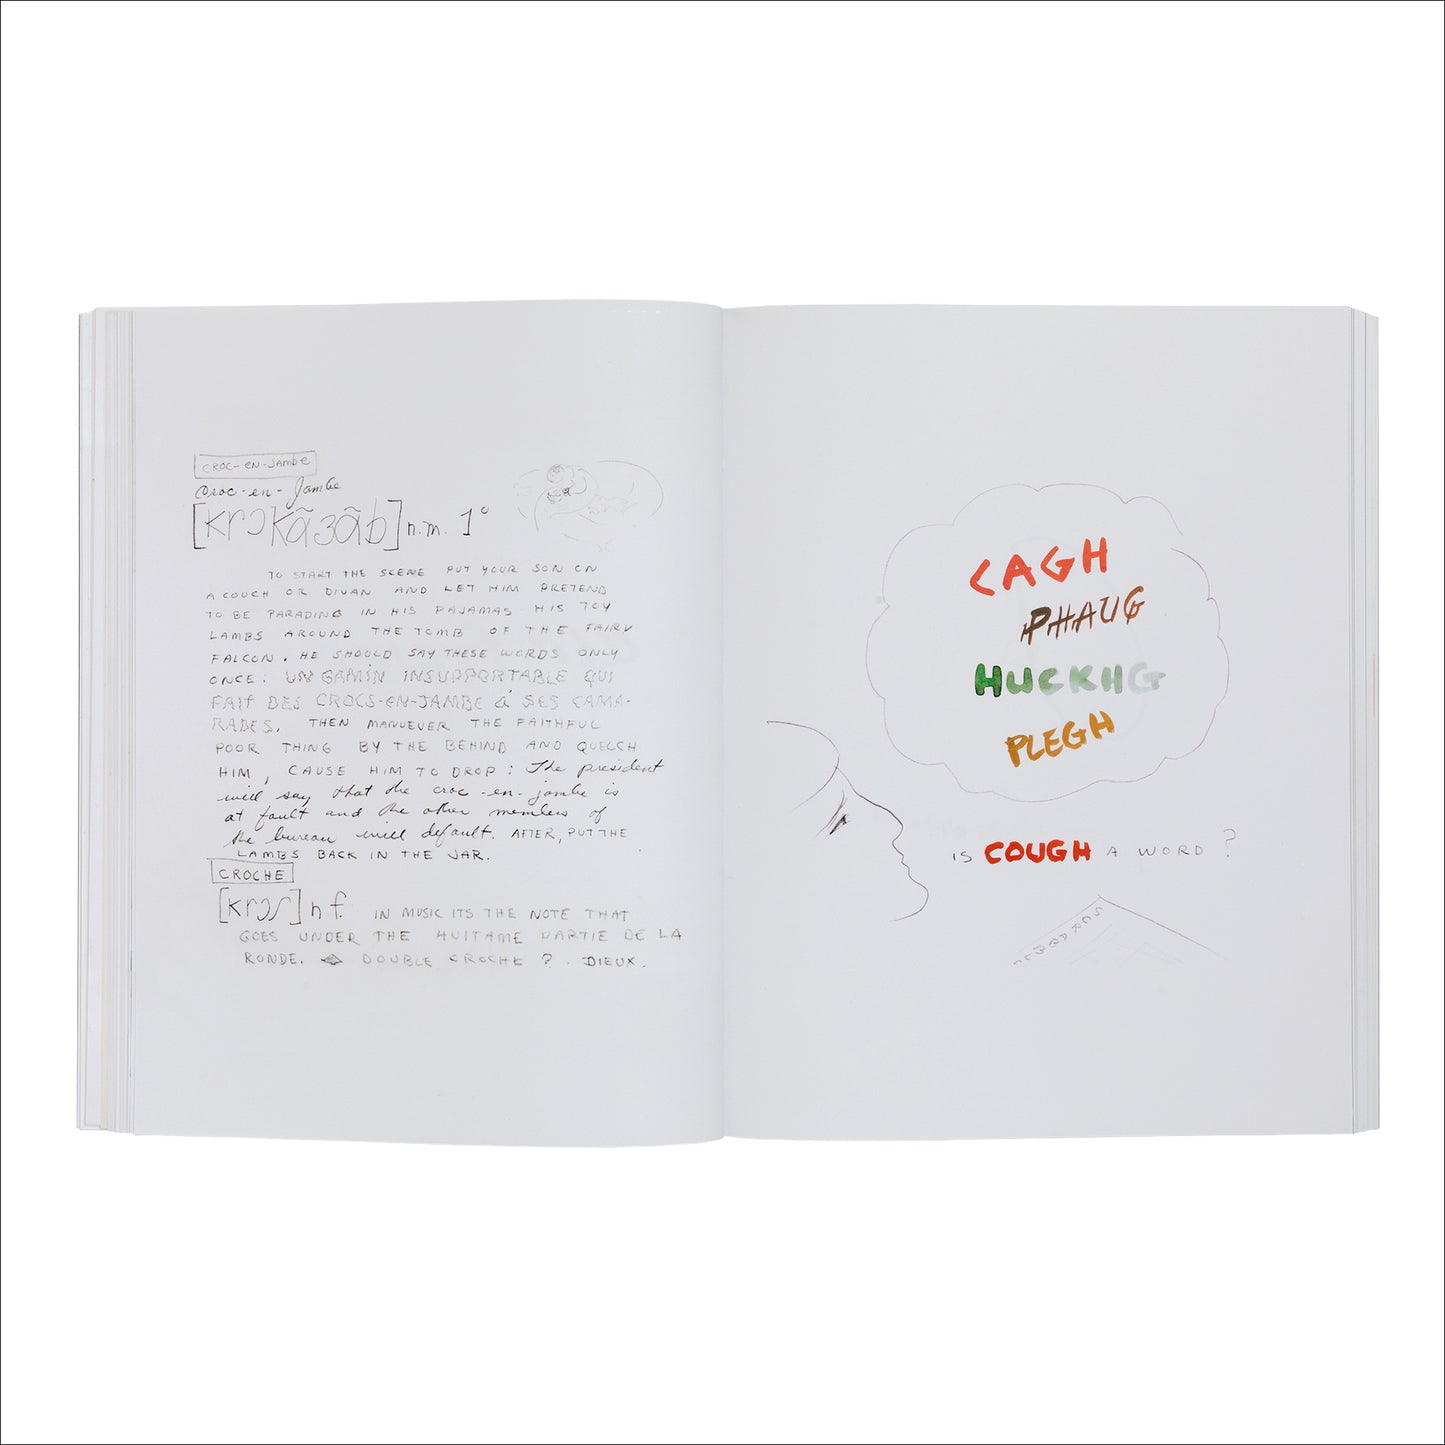 CROC-EN-JAMBE
Croc-en-Jambe
[krɔkɑ̃ʒɑ̃b] n.m. 1°
TO START THE SCENE PUT YOUR SON ON
A COUCH OR DIVAN AND LET HIM PRETEND
TO BE PARADING IN HIS PAJAMAS HIS TOY
LAMBS AROUND THE TOMB OF THE FAIRY
FALCON. HE SHOULD SAY THESE WORDS ONLY
ONCE: UN GAMIN INSUPPORTABLE QUI
FAIT DES CROCS-EN-JAMBE À SES CAMA-
RADES. THEN MANUEVER THE FAITHFUL
POOR THING BY THE BEHIND AND QUELCH
HIM, CAUSE HIM TO DROP: The president
will say that the croc-en-jambe is
at fault and the other members of
the bureau will default. AFTER, PUT THE
LAMBS BACK IN THE JAR.
CROCHE
[krɔʃ] n f. IN MUSIC ITS THE NOTE THAT
GOES UNDER THE HUITAME PARTIE DE LA
RONDE. DOUBLE CROCHE ? . DIEUX.
CAGH
PHAUG
HUCKHG
PLEGH
IS COUGH A WORD ?